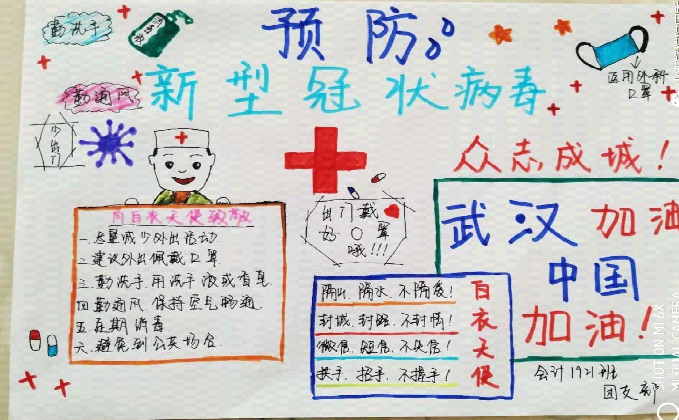 勤洗手
预防
新型冠状病毒
医用外科
口罩
勤通风
少出门
众志成城！
向白衣天使致敬
一.尽量减少外出活动
二.建议外出佩戴口罩
三.勤洗手.用洗手液或香皂
四.勤通风.保持空气畅通
五.定期消毒
六.避免到公共场合.
出门戴
好口罩
哦!!!
武汉加油
中国
加油!
隔山,隔水,不隔爱!
封城,封路,不封情!
微信,短信,不失信!
扶手,招手,不握手!
白衣天使
会计1921班
团支部
SHOT ON MI 6X
MI DUAL CAMERA